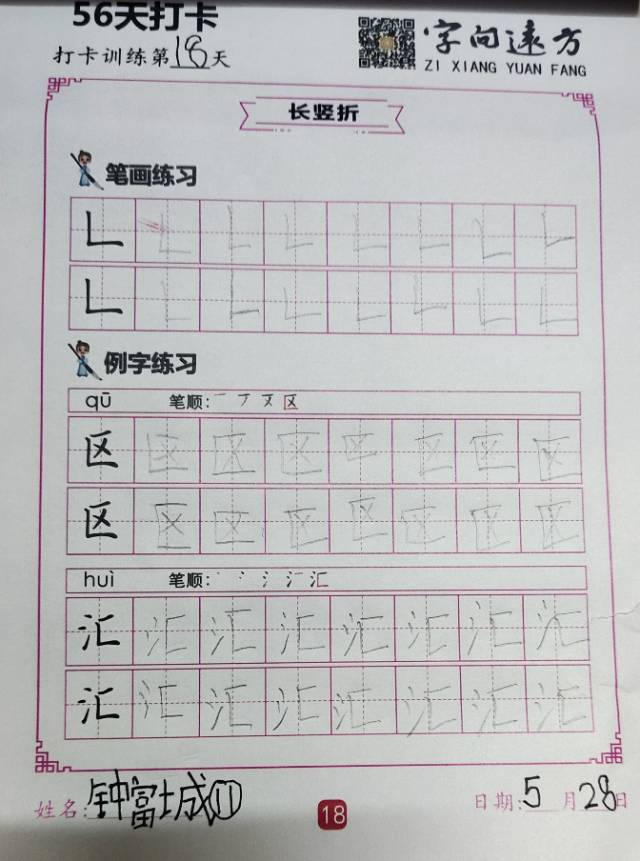 56天打卡
打卡训练第18天
字向远方
ZI XIANG YUAN FANG
长竖折
笔画练习
𠃊 𠃊 𠃊 𠃊 𠃊 𠃊 𠃊 𠃊
𠃊 𠃊 𠃊 𠃊 𠃊 𠃊 𠃊 𠃊
例字练习
qū 笔顺: 一 丆 区
区 区 区 区 区 区 区 区
区 区 区 区 区 区 区 区
huì 笔顺: 丶 冫 氵 汇
汇 汇 汇 汇 汇 汇 汇 汇
汇 汇 汇 汇 汇 汇 汇 汇
姓名: 钟富城⑪
18
日期: 5月28日